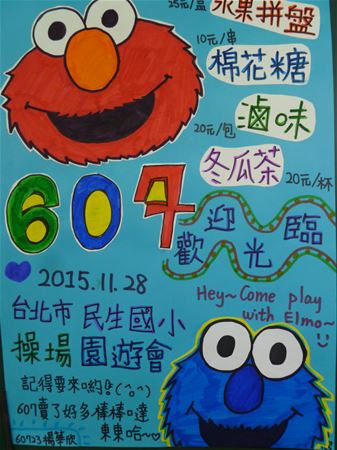 25元/盒 水果拼盤
10元/串
棉花糖
20元/包 滷味
冬瓜茶
20元/杯
607
歡迎光臨
2015.11.28
Hey~ Come play
with Elmo~
台北市 民生國小
操場 園遊會
記得要來喲!!
607賣了好多棒棒噠
東東哈~
60723楊華欣